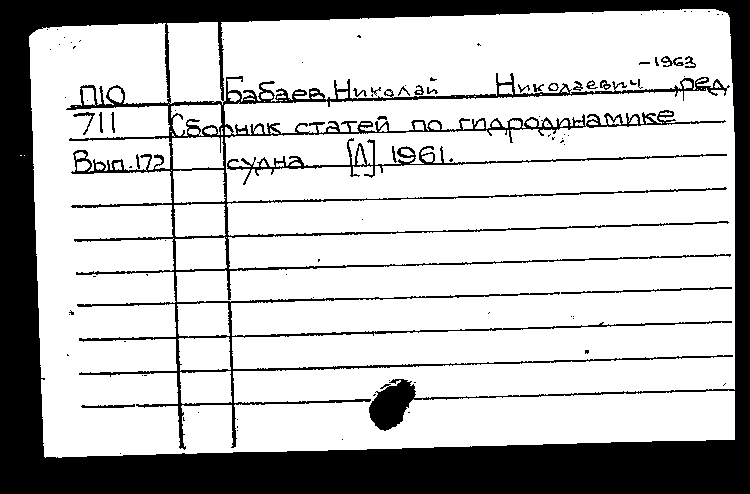 -1963
П10 Бабаев, Николай Николаевич, ред.
711 Сборник статей по гидродинамике
Вып.172 судна [Л], 1961.